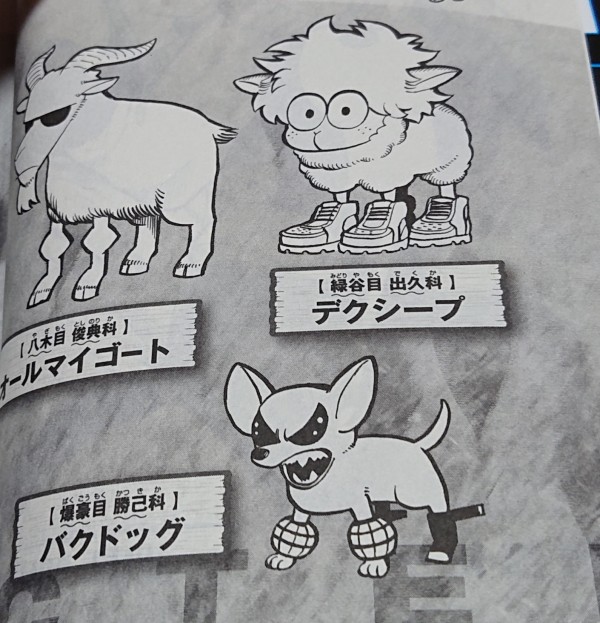 【 八木目 俊典科 】
オールマイゴート
【 緑谷目 出久科 】
デクシープ
【 爆豪目 勝己科 】
バクドッグ